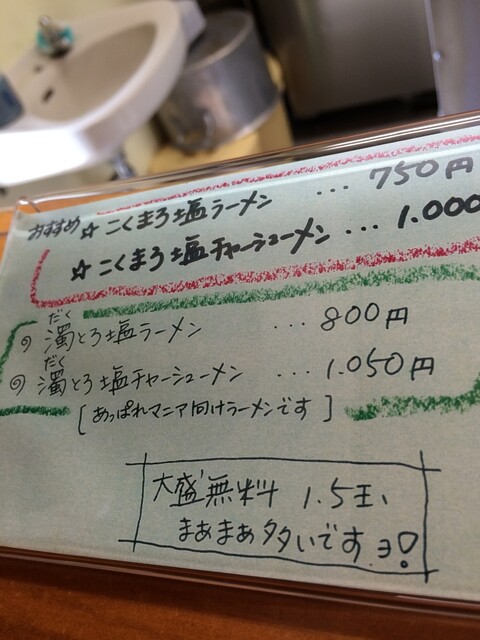 おすすめ ☆ こくまろ塩ラーメン ... 750円
☆ こくまろ塩チャーシューメン ... 1.000
だく
の 濁とろ塩ラーメン ... 800円
だく
の 濁とろ塩チャーシューメン ... 1.050円
[あっぱれマニア向けラーメンです]
大盛無料 1.5玉、
まあまあ多いですョ!